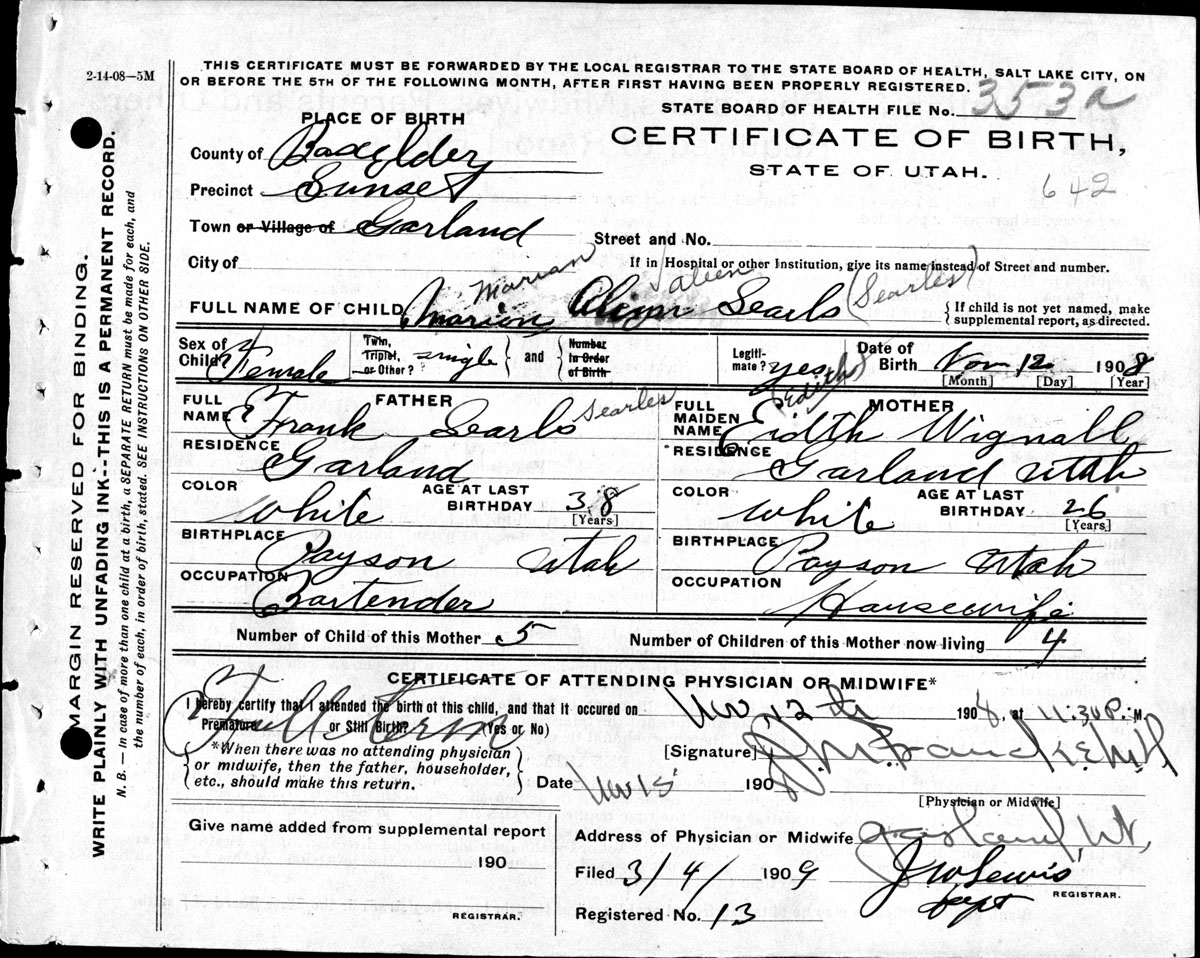 2-14-08—5M
THIS CERTIFICATE MUST BE FORWARDED BY THE LOCAL REGISTRAR TO THE STATE BOARD OF HEALTH, SALT LAKE CITY, ON
OR BEFORE THE 5TH OF THE FOLLOWING MONTH, AFTER FIRST HAVING BEEN PROPERLY REGISTERED.
STATE BOARD OF HEALTH FILE No. 353a
PLACE OF BIRTH
CERTIFICATE OF BIRTH,
STATE OF UTAH.
642
County of Boxelder
Precinct Sunset
Town or Village of Garland
Street and No.
City of
If in Hospital or other Institution, give its name instead of Street and number.
Marian Aleen (Searles)
FULL NAME OF CHILD Marion Searls
{ If child is not yet named, make
supplemental report, as directed.
Sex of Child Female
Twin, Triplet, or Other? single } and { Number in Order of Birth
Legiti-mate? yes
Date of Birth Nov 12 1908
[Month] [Day] [Year]
FATHER
FULL NAME Frank Searls Searles
RESIDENCE Garland
COLOR white
AGE AT LAST BIRTHDAY 38
[Years]
BIRTHPLACE Payson Utah
OCCUPATION Bartender
MOTHER
(Edith)
FULL MAIDEN NAME Eidth Wignall
RESIDENCE Garland Utah
COLOR white
AGE AT LAST BIRTHDAY 26
[Years]
BIRTHPLACE Payson Utah
OCCUPATION Housewife
Number of Child of this Mother 5
Number of Children of this Mother now living 4
CERTIFICATE OF ATTENDING PHYSICIAN OR MIDWIFE*
I hereby certify that I attended the birth of this child, and that it occured on Nov 12th 1908, at 11:30 P. M.
Premature or Still Birth? (Yes or No)
Full term
*When there was no attending physician
or midwife, then the father, householder,
etc., should make this return.
[Signature]
Date Nov 15 190
[Physician or Midwife]
Address of Physician or Midwife Garland, Ut.
Give name added from supplemental report
190
REGISTRAR.
Filed 3/4/ 1909 J W Lewis
REGISTRAR.
Registered No. 13
MARGIN RESERVED FOR BINDING.
WRITE PLAINLY WITH UNFADING INK--THIS IS A PERMANENT RECORD.
N. B. — In case of more than one child at a birth, a SEPARATE RETURN must be made for each, and
the number of each, in order of birth, stated. SEE INSTRUCTIONS ON OTHER SIDE.